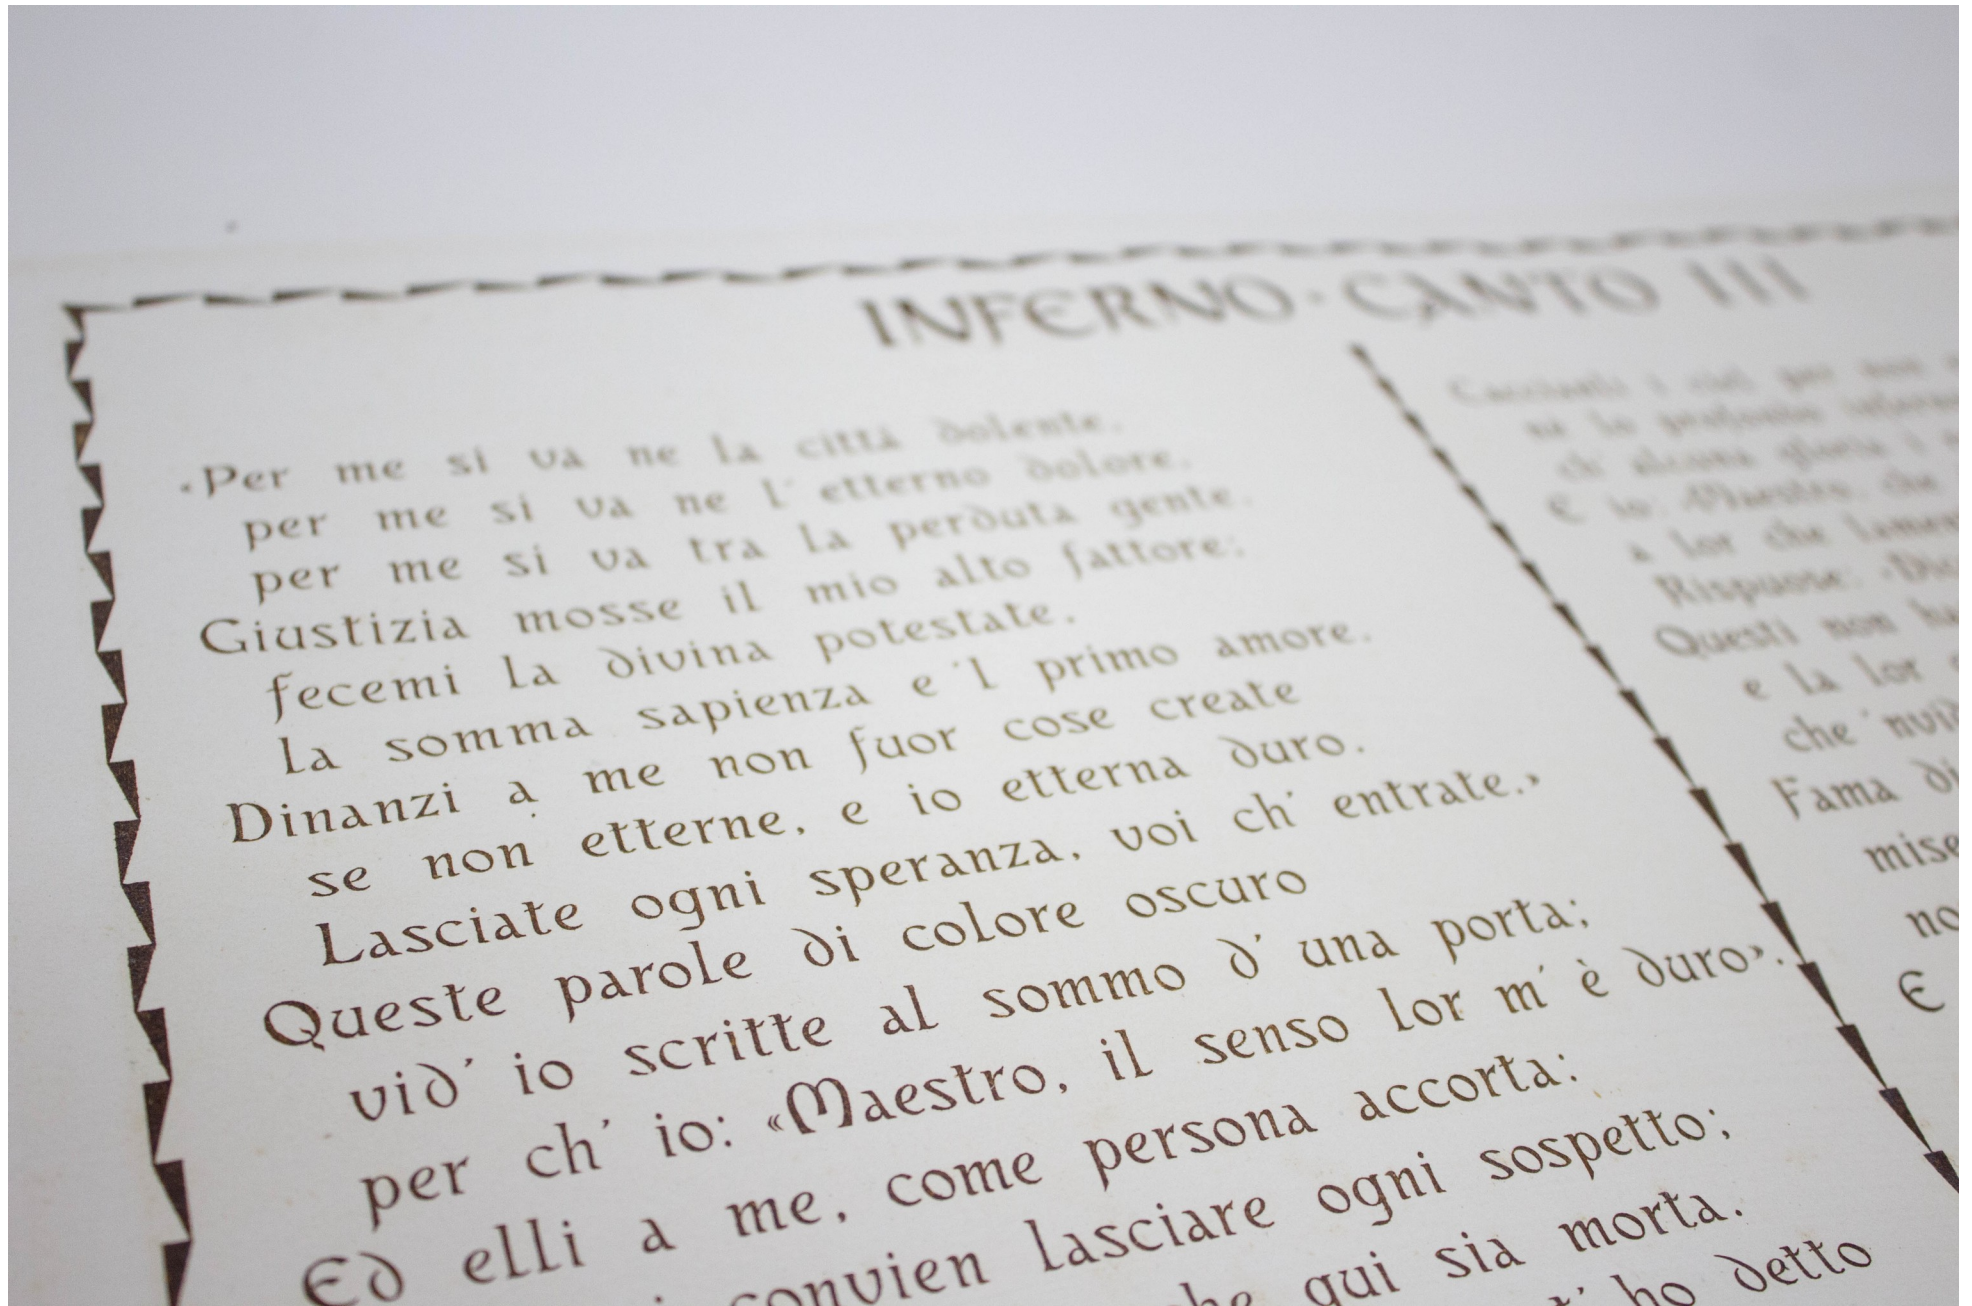 INFERNO · CANTO III
«Per me si va ne la città dolente,
per me si va ne l' etterno dolore,
per me si va tra la perduta gente.
Giustizia mosse il mio alto fattore:
fecemi la divina potestate,
la somma sapienza e 'l primo amore.
Dinanzi a me non fuor cose create
se non etterne, e io etterna duro.
Lasciate ogni speranza, voi ch' entrate.»
Queste parole di colore oscuro
vid' io scritte al sommo d' una porta;
per ch' io: «Maestro, il senso lor m' è duro».
Ed elli a me, come persona accorta:
convien lasciare ogni sospetto;
che qui sia morta.
t' ho detto
Caccianli i ciel per non
ne lo profondo inferno
ch' alcuna gloria i
E io: «Maestro, che
a lor che lamen
Rispuose: «Dic
Questi non ha
e la lor
che 'nvid
Fama di
mise
no
E